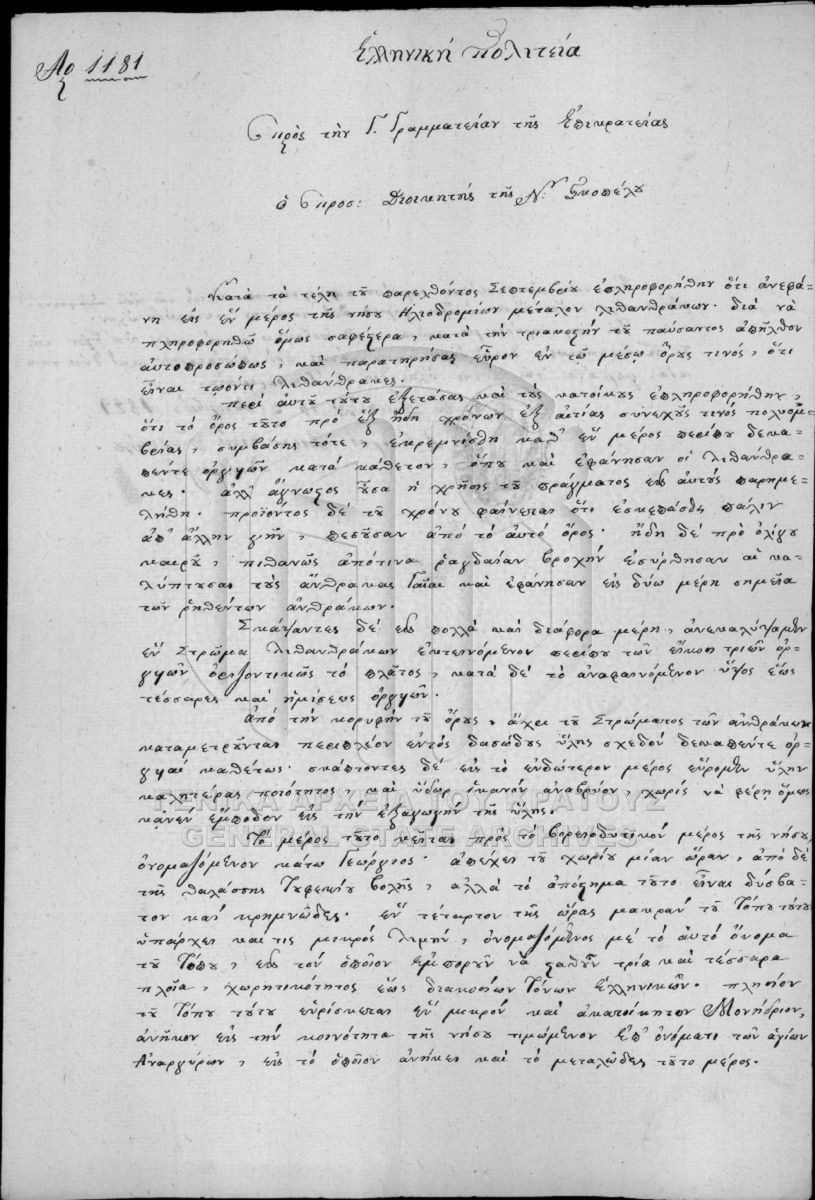 Ἑλληνικὴ πολιτεία
Αρ 1181
Πρὸς τὴν Γ. Γραμματείαν τῆς Ἐπικρατείας
ὁ Προσ: Διοικητὴς τῆς Ν: Σκοπέλου
Κατὰ τὰ τέλη τοῦ παρελθόντος Σεπτεμβρίου ἐπληροφορήθην ὅτι ἀνεφά-
νη εἰς ἓν μέρος τῆς νήσου Ηλιοδρομίων μέταλον λιθανθράκων. διὰ νὰ
πληροφορηθῶ ὅμως σαφέστερα, κατὰ τὴν τριακοστὴν τοῦ παύσαντος ἀπῆλθον
αὐτοπροσώπως, καὶ παρατηρήσας εὗρον ἐν τῷ μέσῳ ὄρους τινὸς, ὅτι
εἶναι τῳόντι λιθάνθρακες.
περὶ αὐτοῦ τούτου ἐξετάσας καὶ τοὺς κατοίκους ἐπληροφορήθην,
ὅτι τὸ ὄρος τοῦτο πρὸ ἓξ ἤδη χρόνων ἐξ αἰτίας συνεχοῦς τινὸς πολυομ-
βρίας, συμβάσης τότε, ἐκρεμνίσθη καθ' ἓν μέρος περίπου δεκα-
πέντε ὀργυῶν κατὰ κάθετον, ὅπου καὶ ἐφάνησαν οἱ λιθάνθρα-
κες. ἀλλ' ἄγνωστος οὖσα ἡ χρῆσις τοῦ πράγματος εἰς αὐτοὺς παρημε-
λήθη. προϊόντος δὲ τοῦ χρόνου φαίνεται ὅτι ἐσκεπάσθη πάλιν
ἀπ' ἄλλην γῆν, πεσοῦσαν ἀπὸ τὸ αὐτὸ ὄρος. ἤδη δὲ πρὸ ὀλίγου
καιροῦ, πιθανῶς ἀπό τινα ῥαγδαίαν βροχὴν ἐσύρθησαν αἱ κα-
λύπτουσαι τοὺς ἄνθρακας Γαῖαι καὶ ἐφάνησαν εἰς δύω μέρη σημεῖα
τῶν ῥηθέντων ἀνθράκων.
Σκάψαντες δὲ εἰς πολλὰ καὶ διάφορα μέρη, ἀνεκαλύψαμεν
ἓν Στρῶμα λιθανθράκων ἐκτεινόμενον περίπου τῶν εἴκοσι τριῶν ὀρ-
γυῶν ὁριζοντικῶς τὸ πλάτος, κατὰ δὲ τὸ ἀναφαινόμενον ὕψος ἕως
τέσσαρες καὶ ἡμίσεως ὀργυῶν.
ἀπὸ τὴν κορυφὴν τοῦ ὄρους, ἄχρι τοῦ Στρώματος τῶν ἀνθράκων
καταμετροῦνται περιπλέον ἐντὸς δασώδους ὕλης σχεδὸν δεκαπέντε ὀρ-
γυιαὶ καθέτως. σκάπτοντες δὲ εἰς τὸ ἐνδώτερον μέρος εὕρομεν ὕλην
καλητέρας ποιότητος, καὶ ὕδωρ ἱκανὸν ἀναβρύον, χωρὶς νὰ φέρῃ ὅμως
κανὲν ἐμπόδον εἰς τὴν ἐξαγωγὴν τῆς ὕλης.
Τὸ μέρος τοῦτο κεῖται πρὸς τὸ βορειοδυτικὸν μέρος τῆς νήσου,
ὀνομαζόμενον κάτω Γεώργιος. ἀπέχει τοῦ χωρίου μίαν ὥραν, ἀπὸ δὲ
τῆς θαλάσσης Τυφεκίου βολῆς, ἀλλὰ τὸ ἀπόστημα τοῦτο εἶναι δύσβα-
τον καὶ κρημνῶδες. ἓν τέταρτον τῆς ὥρας μακρὰν τοῦ Τόπου τούτου
ὑπάρχει καί τις μικρὸς λιμὴν, ὀνομαζόμενος μὲ τὸ αὐτὸ ὄνομα
τοῦ Τόπου, εἰς τὸν ὁποῖον ἐμποροῦν νὰ σταθοῦν τρία καὶ τέσσαρα
πλοῖα, χωρητικότητος ἕως διακοσίων Τόνων Ἑλληνικῶν. πλησίον
τοῦ Τόπου τούτου εὑρίσκεται ἓν μικρὸν καὶ ἀκατοίκητον Μονήδριον,
ἀνῆκον εἰς τὴν κοινότητα τῆς νήσου τιμώμενον ἐπ' ὀνόματι τῶν ἁγίων
Ἀναργύρων, εἰς τὸ ὁποῖον ἀνήκει καὶ τὸ μεταλῶδες τοῦτο μέρος.
ΓΕΝΙΚΑ ΑΡΧΕΙΑ ΤΟΥ ΚΡΑΤΟΥΣ
GENERAL STATE ARCHIVES